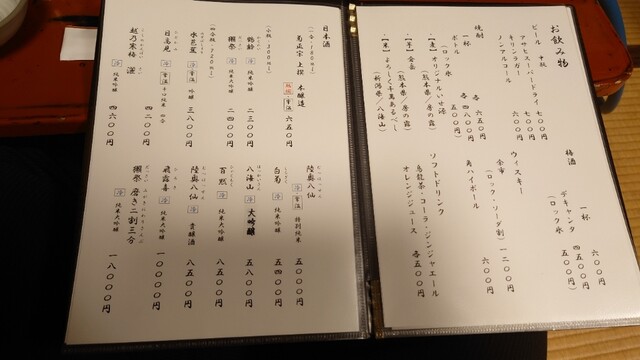 お飲み物
ビール 中瓶
アサヒスーパードライ 七〇〇円
キリンラガー 七〇〇円
ノンアルコール 六〇〇円
焼酎
一杯 各 六五〇円
ボトル 各 四八〇〇円
(ロック氷 五〇〇円)
・【麦】オリジナルいせ源
・【芋】
・【米】よろしく千萬あるべし
(新潟県/八海山)
梅酒
一杯 六〇〇円
デキャンタ 四五〇〇円
(ロック氷 五〇〇円)
ウィスキー
余市 (ロック・ソーダ割) 一二〇〇円
角ハイボール 六〇〇円
ソフトドリンク
烏龍茶・コーラ・ジンジャエール
オレンジジュース 各五〇〇円
日本酒
(一合・180ml)
菊正宗 上撰 本醸造 六五〇円
(小瓶・300ml)
純米吟醸 二三〇〇円
獺祭 冷 純米大吟醸 二四〇〇円
(四合瓶・720ml)
水芭蕉 冷 常温 吟醸 三八〇〇円
日高見 冷 常温 辛口純米 四二〇〇円
越乃寒梅 灑 冷 純米吟醸 四六〇〇円
陸奥八仙 冷 常温 特別純米 五〇〇〇円
白菊 冷 純米大吟醸 五四〇〇円
八海山 冷 大吟醸 五八〇〇円
百黙 冷 純米大吟醸 八五〇〇円
陸奥八仙 冷 貴醸酒 八五〇〇円
飛露喜 冷 純米大吟醸 一〇〇〇〇円
獺祭 磨き二割三分 冷 純米大吟醸 一八〇〇〇円